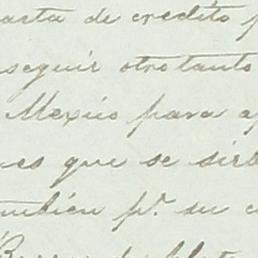 carta de credito p
seguir otro tanto
Mexico para a
ues que se sirv
tambien pr. su c